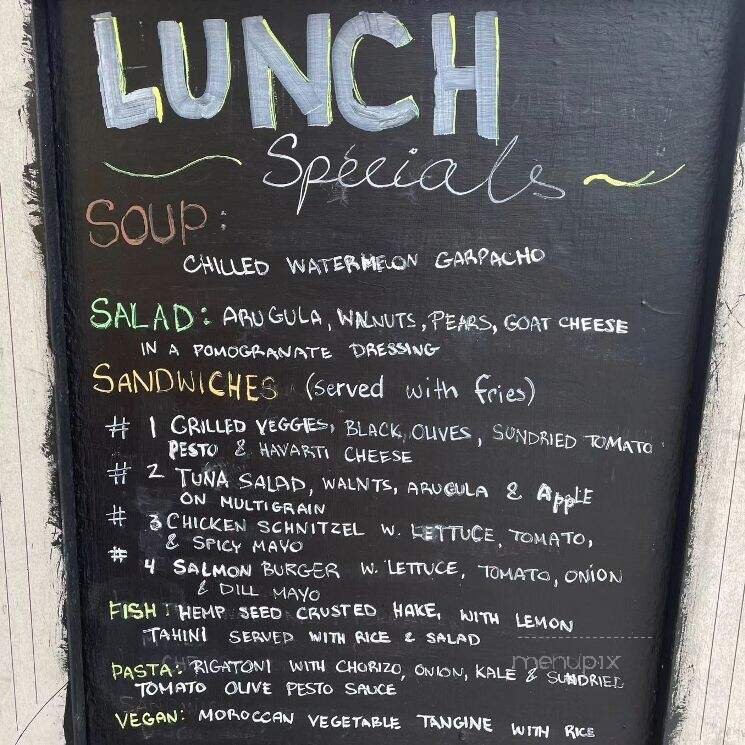 LUNCH
Specials
SOUP:
CHILLED WATERMELON GARPACHO
SALAD: ARUGULA, WALNUTS, PEARS, GOAT CHEESE
IN A POMOGRANATE DRESSING
SANDWICHES (served with fries)
# 1 GRILLED VEGGIES, BLACK, OLIVES, SUNDRIED TOMATO
PESTO & HAVARTI CHEESE
# 2 TUNA SALAD, WALNTS, ARUGULA & APPLE
ON MULTIGRAIN
# 3 CHICKEN SCHNITZEL W. LETTUCE, TOMATO,
& SPICY MAYO
# 4 SALMON BURGER W. LETTUCE, TOMATO, ONION
& DILL MAYO
FISH: HEMP SEED CRUSTED HAKE, WITH LEMON
TAHINI SERVED WITH RICE & SALAD
menupix
PASTA: RIGATONI WITH CHORIZO, ONION, KALE & SUNDRIED
TOMATO OLIVE PESTO SAUCE
VEGAN: MOROCCAN VEGETABLE TANGINE WITH RICE